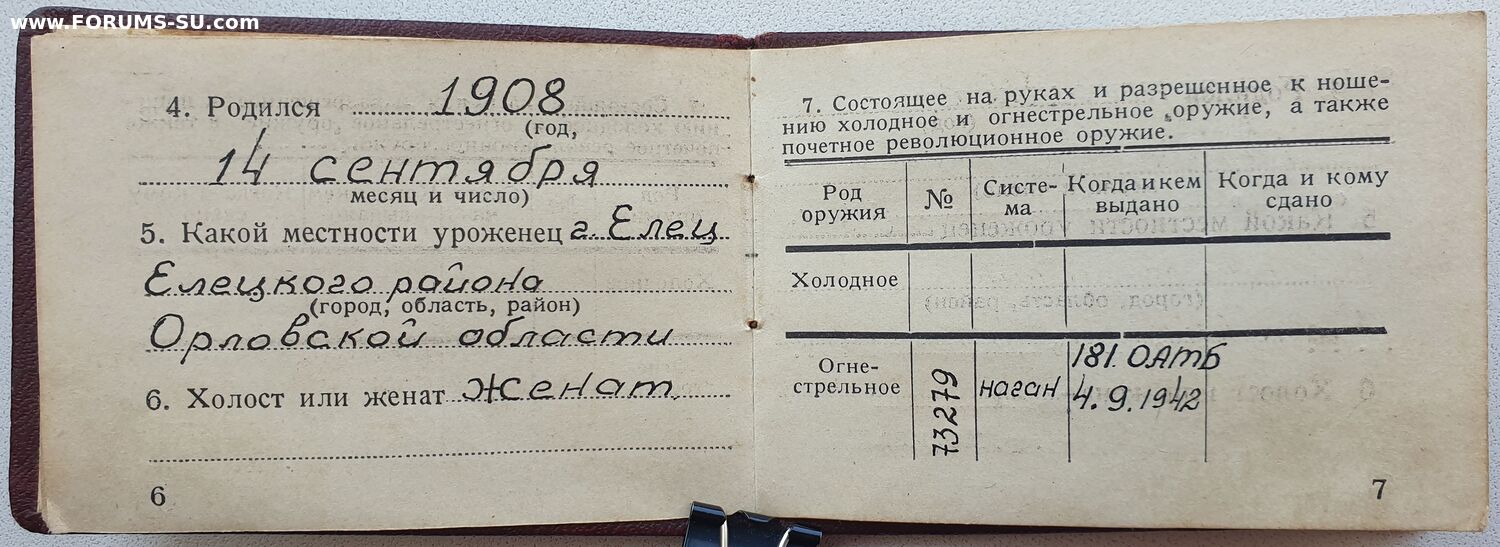 www.FORUMS-SU.com
4. Родился 1908
(год,
14 сентября
месяц и число)
5. Какой местности уроженец г. Елец
Елецкого района
(город, область, район)
Орловской области
6. Холост или женат женат
6
7. Состоящее на руках и разрешенное к ноше-
нию холодное и огнестрельное оружие, а также
почетное революционное оружие.
Род оружия № Систе-ма Когда и кем выдано Когда и кому сдано
Холодное
Огне-стрельное 73279 наган 181 ОАТБ 4.9.1942
7